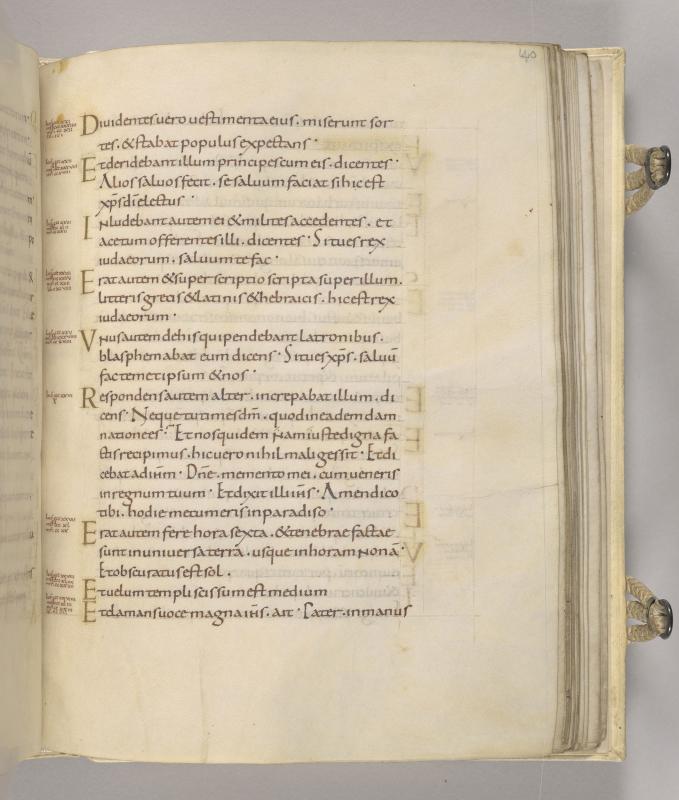 140
Diuidentes uero uestimenta eius · miserunt sor
tes · & stabat populus expectans ·
Et deridebant illum principes cum eis · dicentes ·
Alios saluos fecit · se saluum faciat si hic est
xp̄s dī electus ·
INludebant autem ei & milites accedentes · et
acetum offerentes illi · dicentes · Si tu es rex
iudaeorum · saluum te fac ·
Erat autem & superscriptio scripta super illum ·
litteris grecis & latinis & hebraicis · hic est rex
iudaeorum ·
VNus autem de his qui pendebant latronibus ·
blasphemabat eum dicens · Si tu es xp̄s · saluū
fac temetipsum & nos ·
Respondens autem alter · increpabat illum · di
cens · Neque tu times dm̄ · quod in eadem dam
natione es · Et nos quidem Nam iuste digna fa
ctis recipimus · hic uero nihil mali gessit · Et di
cebat ad ihm̄ · Dn̄e · memento mei · cum ueneris
in regnum tuum · Et dixit illi ihs̄ · Amen dico
tibi · hodie mecum eris in paradiso ·
Erat autem fere hora sexta · & tenebrae factae
sunt in uniuersa terra · usque in horam Nonā ·
Et obscuratus est sol ·
Et uelum templi scissum est medium
Et clamans uoce magna ihs̄ · ait · Pater · in manus